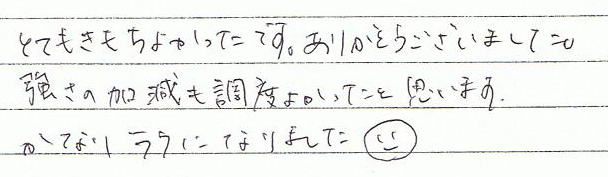 とてもきもちよかったです。ありがとうございました
強さの加減も調度よかったと思います。
かなりラクになりました